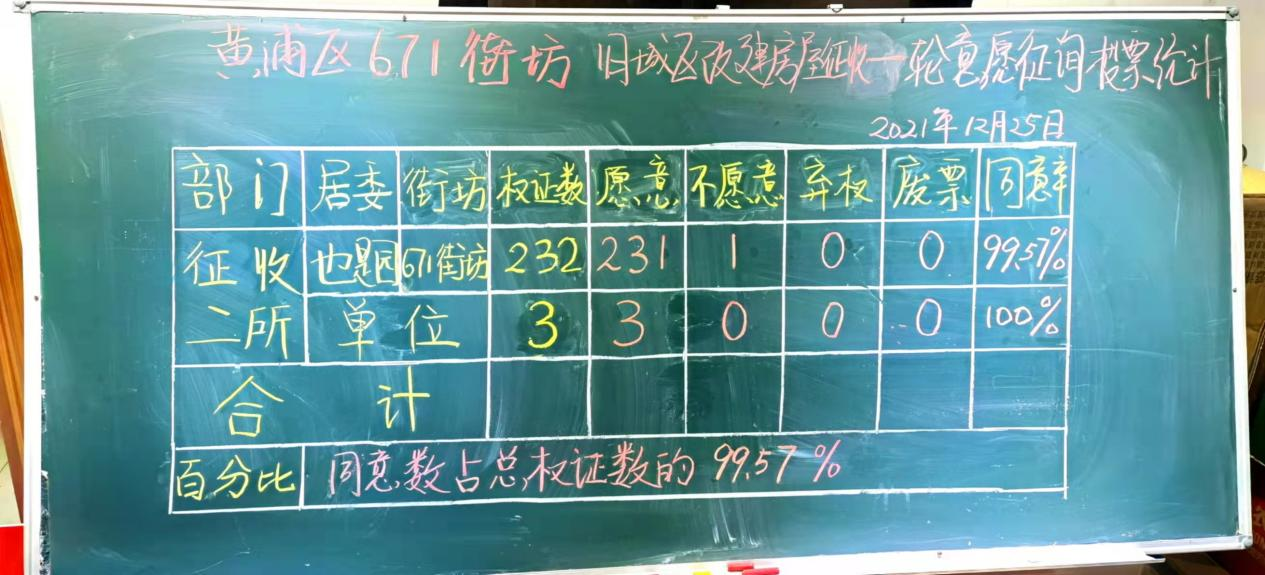 黄浦区671街坊 旧城区改建房屋征收一轮意愿征询投票统计
2021年12月25日
部门 居委 街坊 权证数 愿意 不愿意 弃权 废票 同意率
征收 也是园 671街坊 232 231 1 0 0 99.57%
二所 单位 3 3 0 0 0 100%
合计
百分比 同意数占总权证数的 99.57%